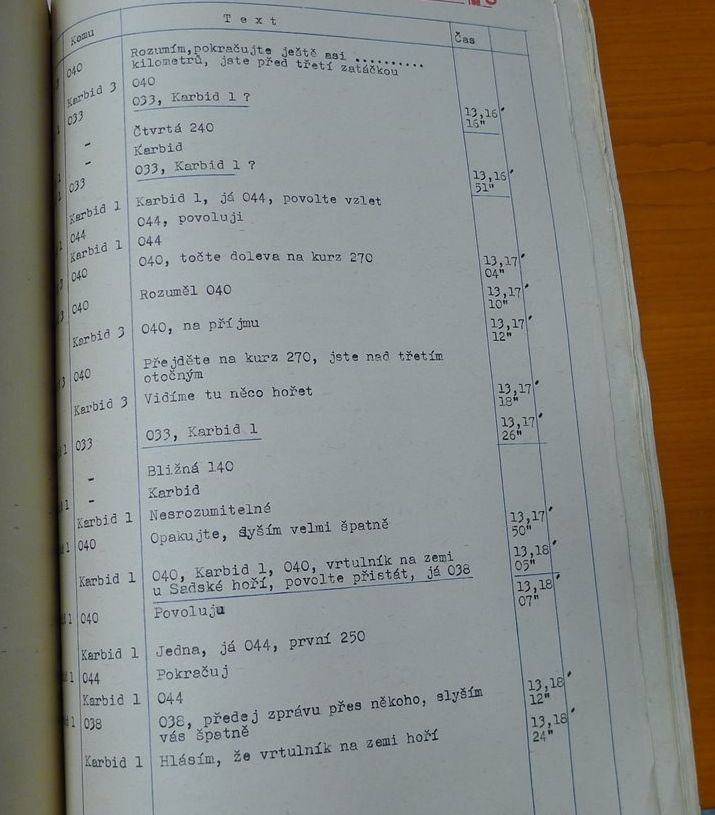 Komu Text Čas
040 Rozumím,pokračujte ještě asi ..........
kilometrů, jste před třetí zatáčkou
Karbid 3 040
033 033, Karbid 1 ? 13,16´
16"
- Čtvrtá 240
- Karbid
033 033, Karbid 1 ? 13,16´
51"
Karbid 1 Karbid 1, já 044, povolte vzlet
044 044, povoluji
Karbid 1 044
040 040, točte doleva na kurz 270 13,17´
04"
040 Rozuměl 040 13,17´
10"
Karbid 3 040, na příjmu 13,17´
12"
040 Přejděte na kurz 270, jste nad třetím
otočným
Karbid 3 Vidíme tu něco hořet 13,17´
18"
033 033, Karbid 1 13,17´
26"
- Bližná 140
- Karbid
Karbid 1 Nesrozumitelné
040 Opakujte, slyším velmi špatně 13,17´
50"
Karbid 1 040, Karbid 1, 040, vrtulník na zemi 13,18´
u Sadské hoří, povolte přistát, já 038 05"
040 Povoluju 13,18´
07"
Karbid 1 Jedna, já 044, první 250
044 Pokračuj
Karbid 1 044
038 038, předej zprávu přes někoho, slyším 13,18´
vás špatně 12"
Karbid 1 Hlásím, že vrtulník na zemi hoří 13,18´
24"